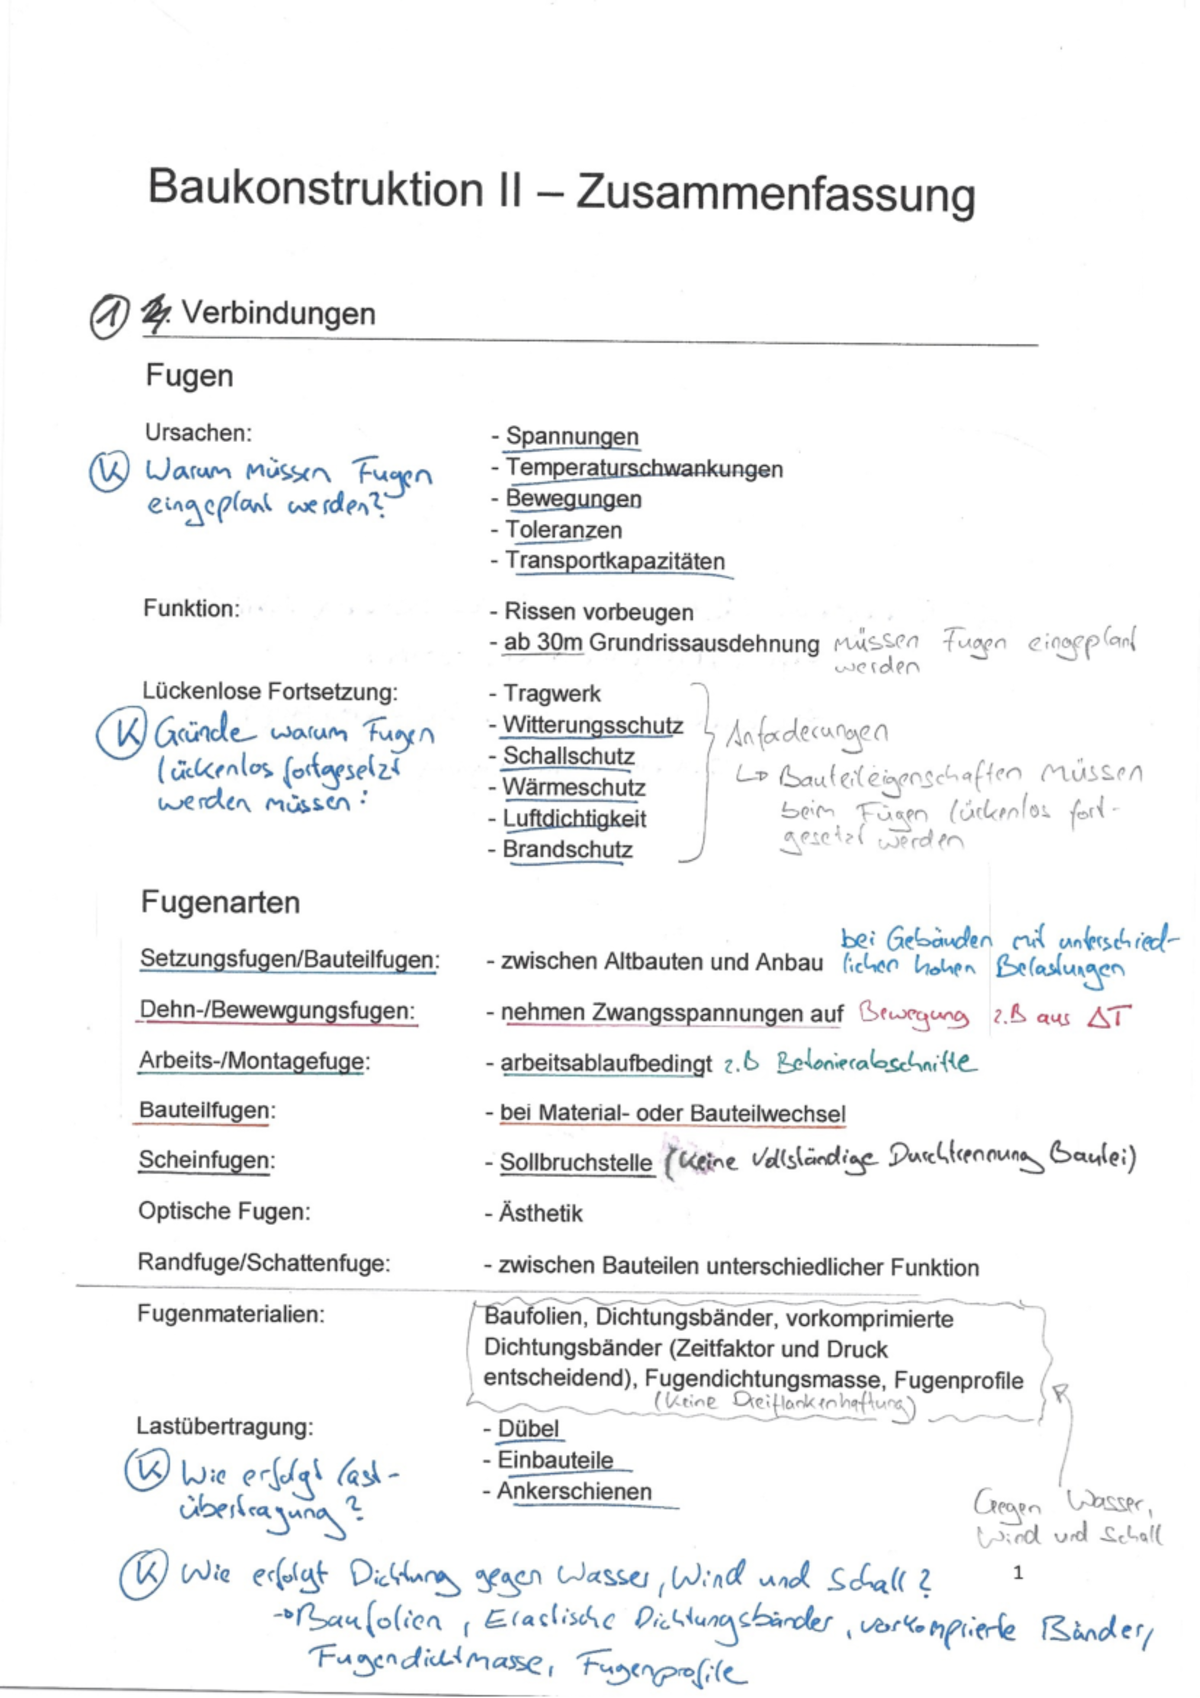 Baukonstruktion II – Zusammenfassung
1 Verbindungen
Fugen
Ursachen: - Spannungen
- Temperaturschwankungen
- Bewegungen
- Toleranzen
- Transportkapazitäten
K Warum müssen Fugen
eingeplant werden?
Funktion: - Rissen vorbeugen
- ab 30m Grundrissausdehnung müssen Fugen eingeplant
werden
Lückenlose Fortsetzung: - Tragwerk
- Witterungsschutz
- Schallschutz
- Wärmeschutz
- Luftdichtigkeit
- Brandschutz
K Gründe warum Fugen
lückenlos fortgesetzt
werden müssen:
Anforderungen
↳ Bauteileigenschaften müssen
beim Fügen lückenlos fort-
gesetzt werden
Fugenarten
Setzungsfugen/Bauteilfugen: - zwischen Altbauten und Anbau bei Gebäuden mit unterschied-
lichen hohen Belastungen
Dehn-/Bewewgungsfugen: - nehmen Zwangsspannungen auf Bewegung z.B aus ΔT
Arbeits-/Montagefuge: - arbeitsablaufbedingt z.B Betonierabschnitte
Bauteilfugen: - bei Material- oder Bauteilwechsel
Scheinfugen: - Sollbruchstelle (Keine Vollständige Durchtrennung Bautei)
Optische Fugen: - Ästhetik
Randfuge/Schattenfuge: - zwischen Bauteilen unterschiedlicher Funktion
Fugenmaterialien: Baufolien, Dichtungsbänder, vorkomprimierte
Dichtungsbänder (Zeitfaktor und Druck
entscheidend), Fugendichtungsmasse, Fugenprofile
(Keine Dreiflankenhaftung)
Lastübertragung: - Dübel
- Einbauteile
- Ankerschienen
K Wie erfolgt Last-
übertragung?
Gegen Wasser,
Wind und Schall
K Wie erfolgt Dichtung gegen Wasser, Wind und Schall?
→ Baufolien, Elastische Dichtungsbänder, vorkomprierte Bänder,
Fugendichtmasse, Fugenprofile
1